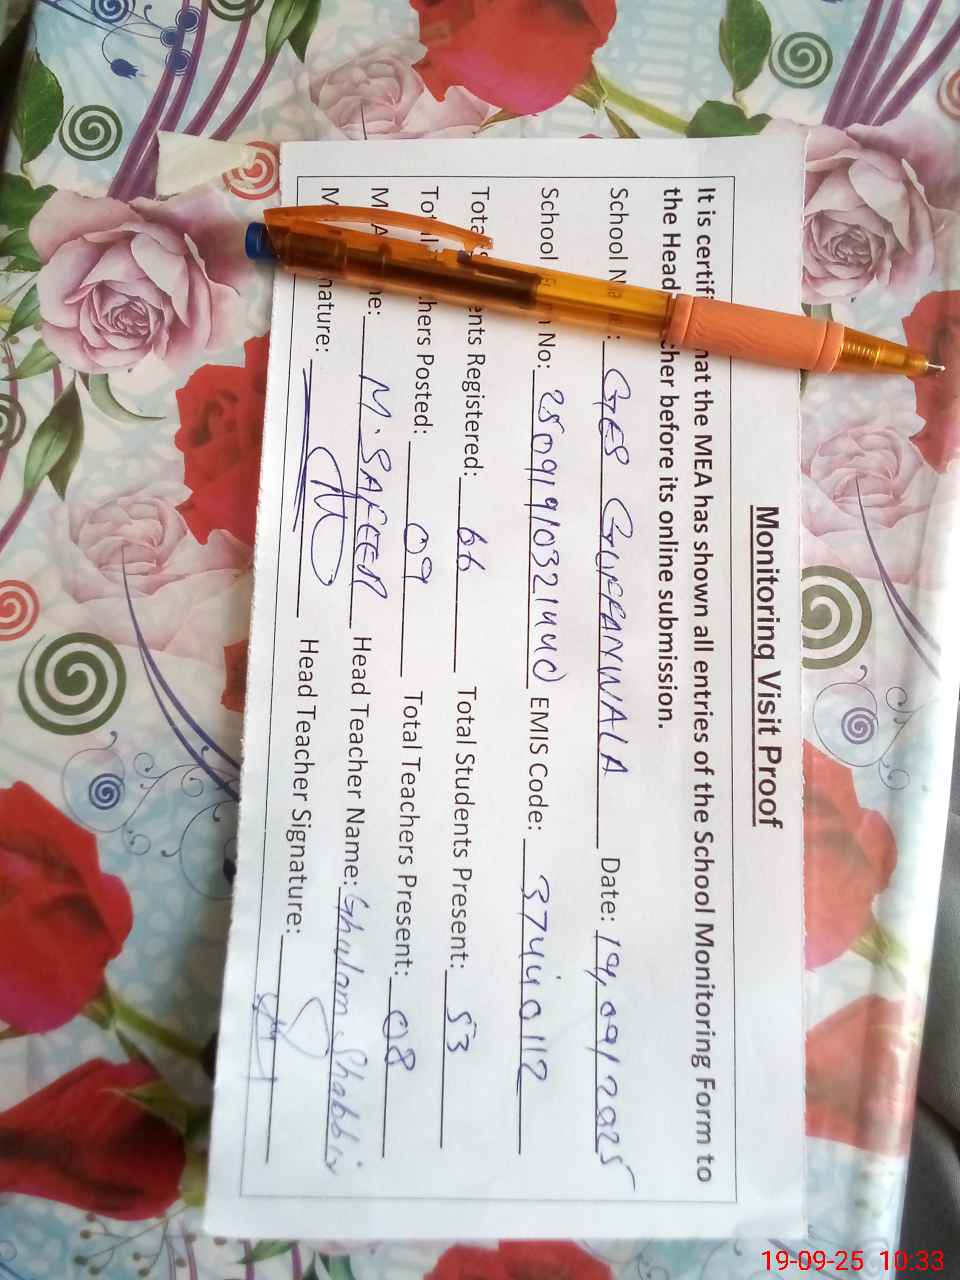 Monitoring Visit Proof
It is certif hat the MEA has shown all entries of the School Monitoring Form to
the Head cher before its online submission.
School Na : GES GUFFANWALA Date: 19/09/2025
School n No: EMIS Code: 37440112
Total s ents Registered: 66 Total Students Present: 53
Total hers Posted: 09 Total Teachers Present: 08
M A me: M. SAFEER Head Teacher Name: Ghulam Shabbir
M nature: Head Teacher Signature:
19-09-25 10:33